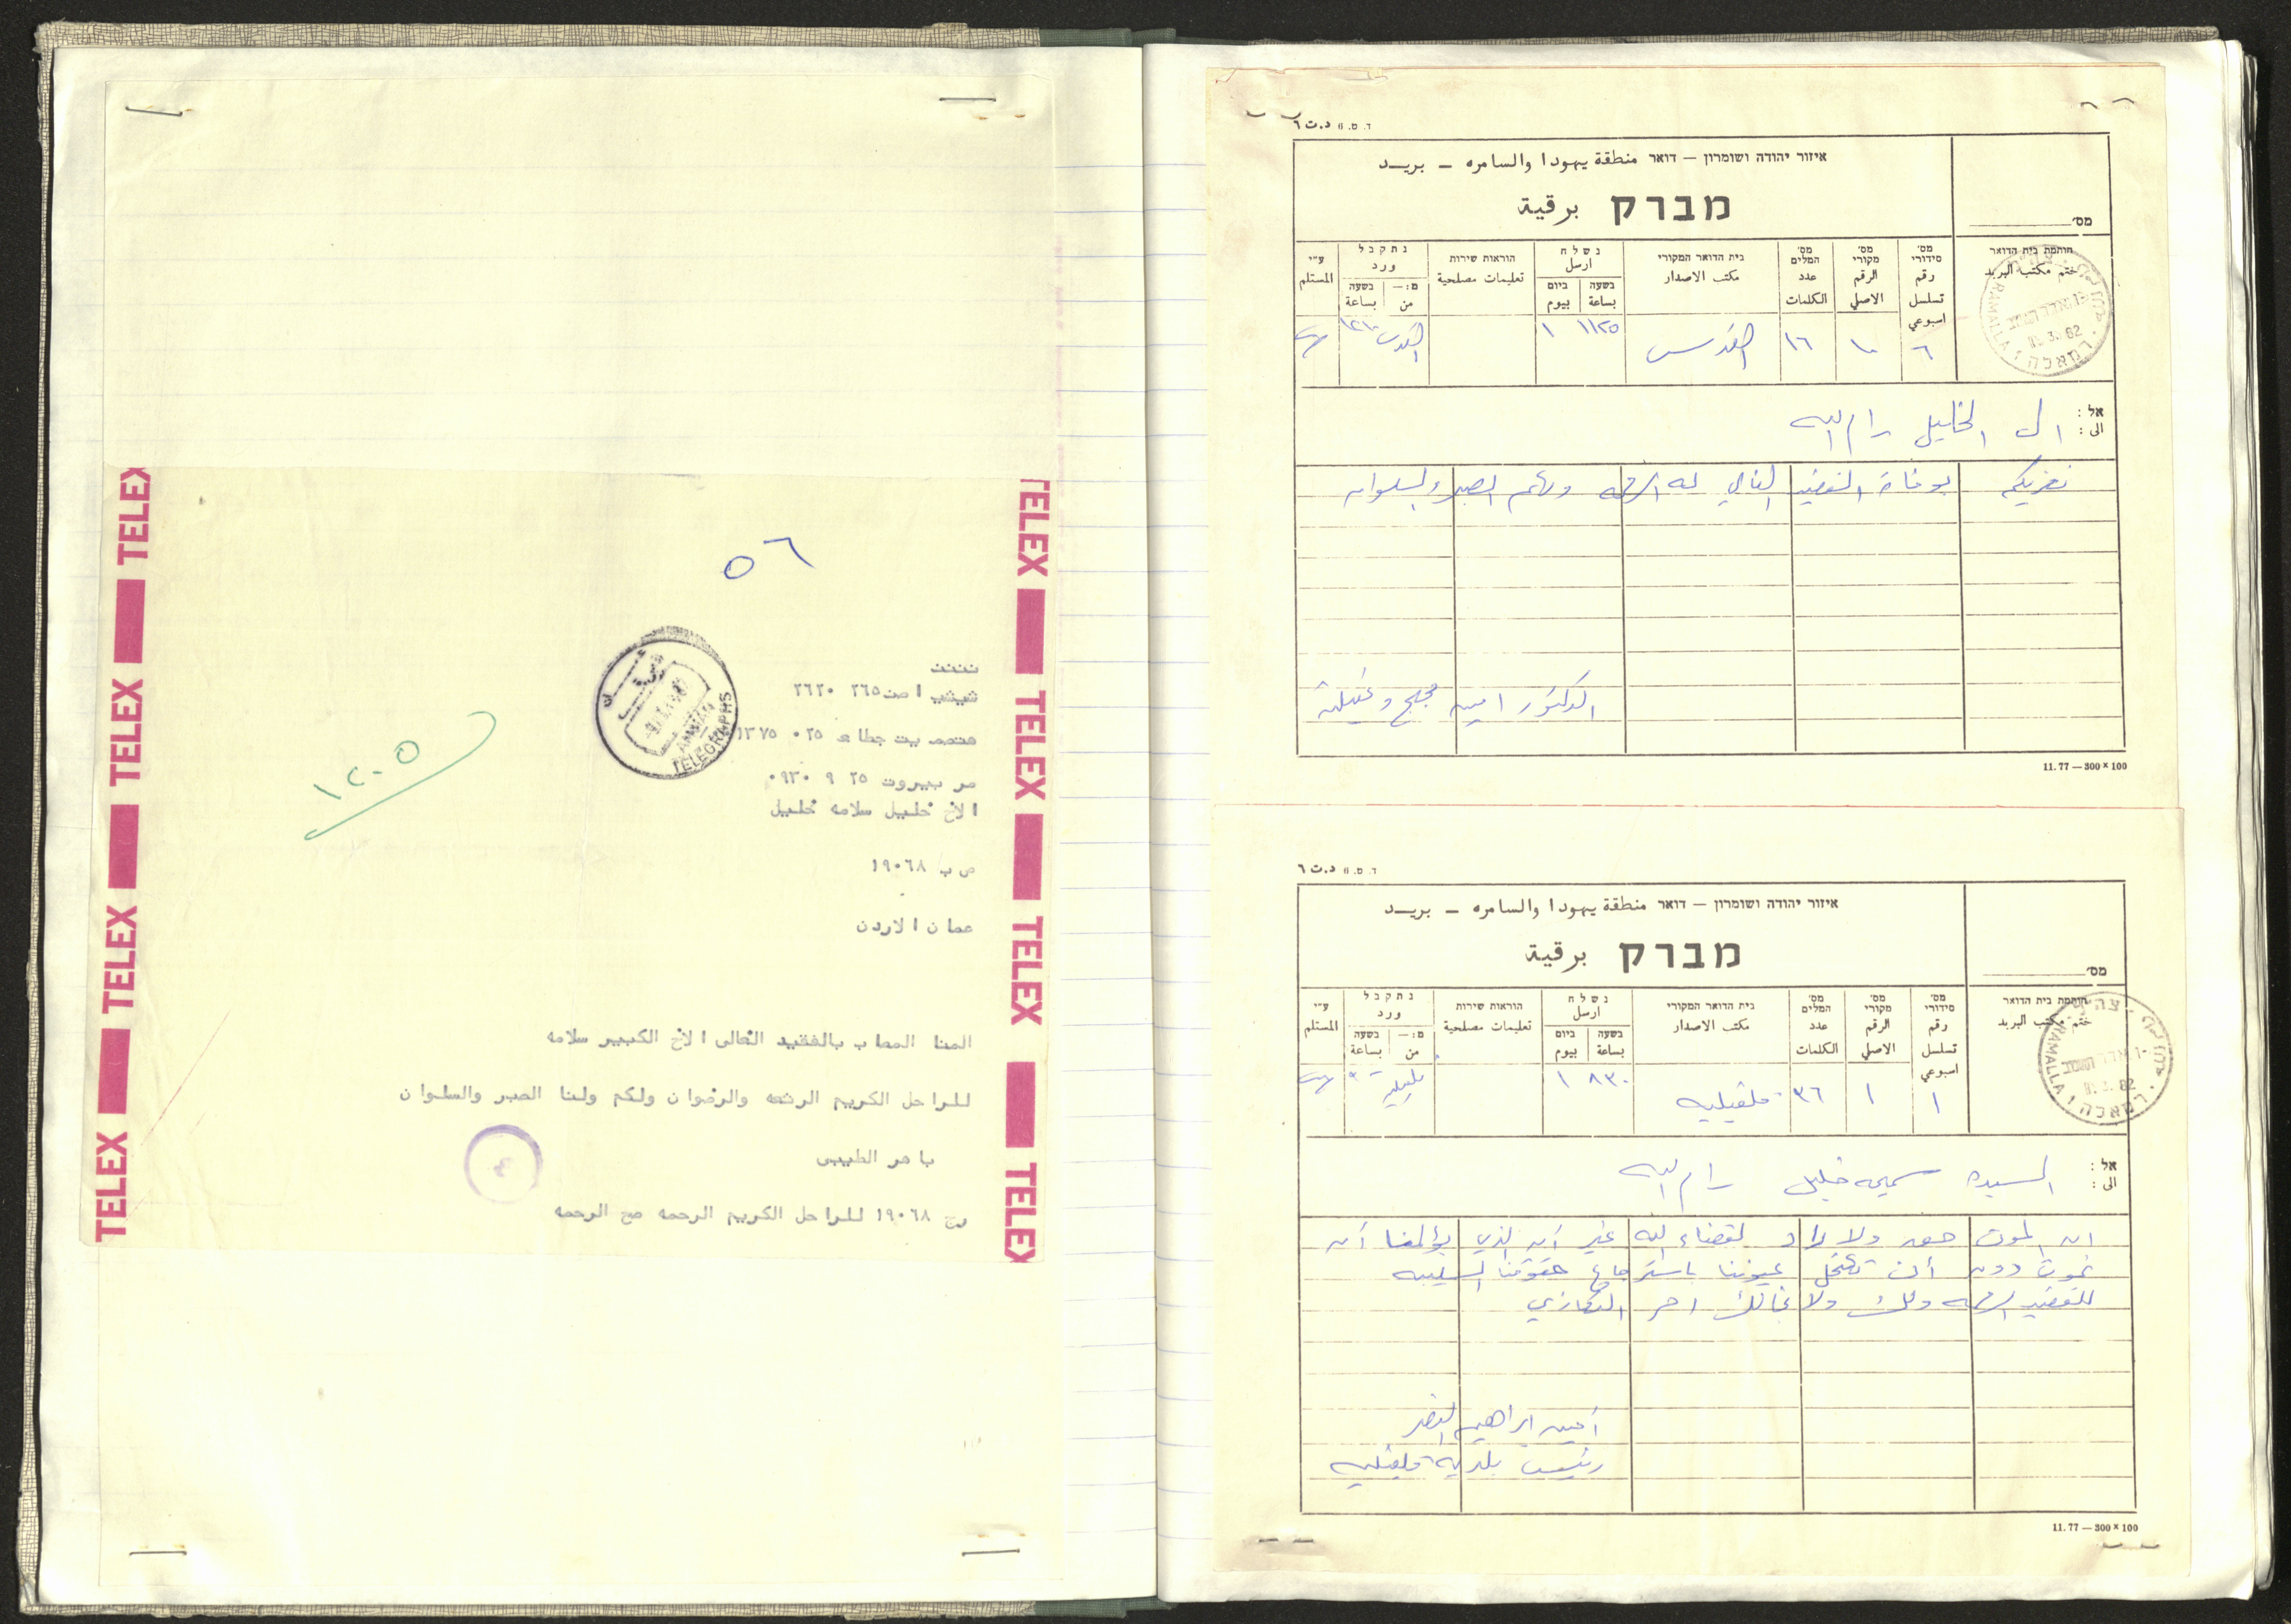 TELEX TELEX TELEX TELEX
TELEX TELEX TELEX TELEX
٥٦
١٢٠٥
AMMAN
TELEGRAPHS
ننننن
٢٦٥ ٢٦٢٠
٢٥ ٠ ١٣٧٥
مر بيروت ٢٥ ٩ ٠٩٣٠
الاخ خليل سلامه خليل
ص ب ١٩٠٦٨
عمان الاردن
المنا المصاب بالفقيد الغالى الاخ الكبير سلامه
للراحل الكريم الرحمه والرضوان ولكم ولنا الصبر والسلوان
باهر الطيبى
رح ١٩٠٦٨ للراحل الكريم الرحمه صح الرحمه
ד. ס. 6 د.ت ٦
איזור יהודה ושומרון – דואר منطقة يهودا والسامره – بريد
מברק برقية
מס'
חותמת בית הדואר
ختم مكتب البريد
מס' סידורי رقم تسلسل اسبوعي
מס' מקורי الرقم الاصلي
מס' המלים عدد الكلمات
בית הדואר המקורי مكتب الاصدار
נשלח ارسل
בשעה بساعة
ביום بيوم
הוראות שירות تعليمات مصلحية
נתקבל ورد
מ:– من
בשעה بساعة
ע"י المستلم
RAMALLA 1 רמאללה
٦ ١٠ ١٦ القدس ١١٢٥ ١ القدس
אל :
الى : ال الخليل رام الله
نعزيكم بوفاة الفقيد الغالي له الرحمه ولكم الصبر والسلوان
الدكتور امين مجج وعقيلته
11.77 — 300 × 100
ד. ס. 6 د.ت ٦
איזור יהודה ושומרון – דואר منطقة يهودا والسامره – بريد
מברק برقية
מס'
חותמת בית הדואר
ختم مكتب البريد
מס' סידורי رقم تسلسل اسبوعي
מס' מקורי الرقم الاصلي
מס' המלים عدد الكلمات
בית הדואר המקורי مكتب الاصدار
נשלח ارسل
בשעה بساعة
ביום بيوم
הוראות שירות تعليمات مصلحية
נתקבל ورد
מ:– من
בשעה بساعة
ע"י المستلم
RAMALLA 1 רמאללה
١ ١ ٣٦ قلقيليه ٨٣٠ ١
אל :
الى : السيده سميحه خليل رام الله
ان الموت حق ولا راد لقضاء الله غير ان الذي يؤلمنا ان
نموت دون أن تكتحل عيوننا باسترجاع حقوقنا السليبه
للفقيد الرحمه ولك ولا احر التعازي
أمين ابراهيم النصر
رئيس بلدية قلقيليه
11.77 — 300 × 100